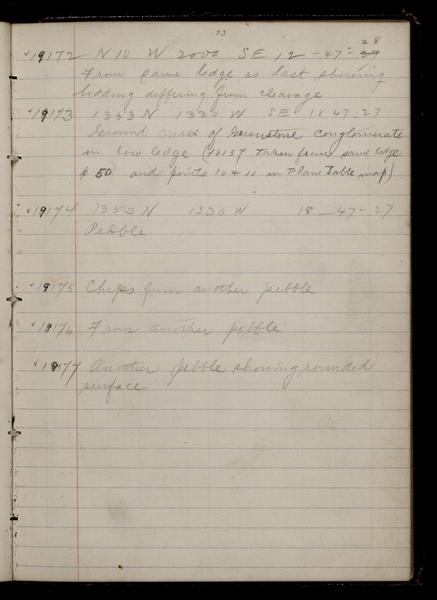 73
19172 N 10 W 2000 SE 12 - 47 - 28 29
From same ledge as last showing
bedding differing from cleavage
19173 1353 N 1330 W SE 18-47-27
Ground mass of Greenstone conglomerate
in low ledge (13157 taken from same ledge
p 50 and points 10 & 11 on Plane Table map)
19174 1353 N 1330 W 18-47-27
Pebble
19175 Chips from another pebble
19176 From another pebble
19177 Another pebble showing rounded
surface